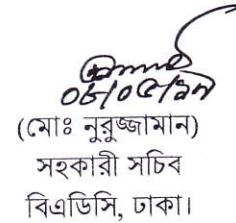 ০৮/০৫/১৭
(মোঃ নুরুজ্জামান)
সহকারী সচিব
বিএডিসি, ঢাকা।